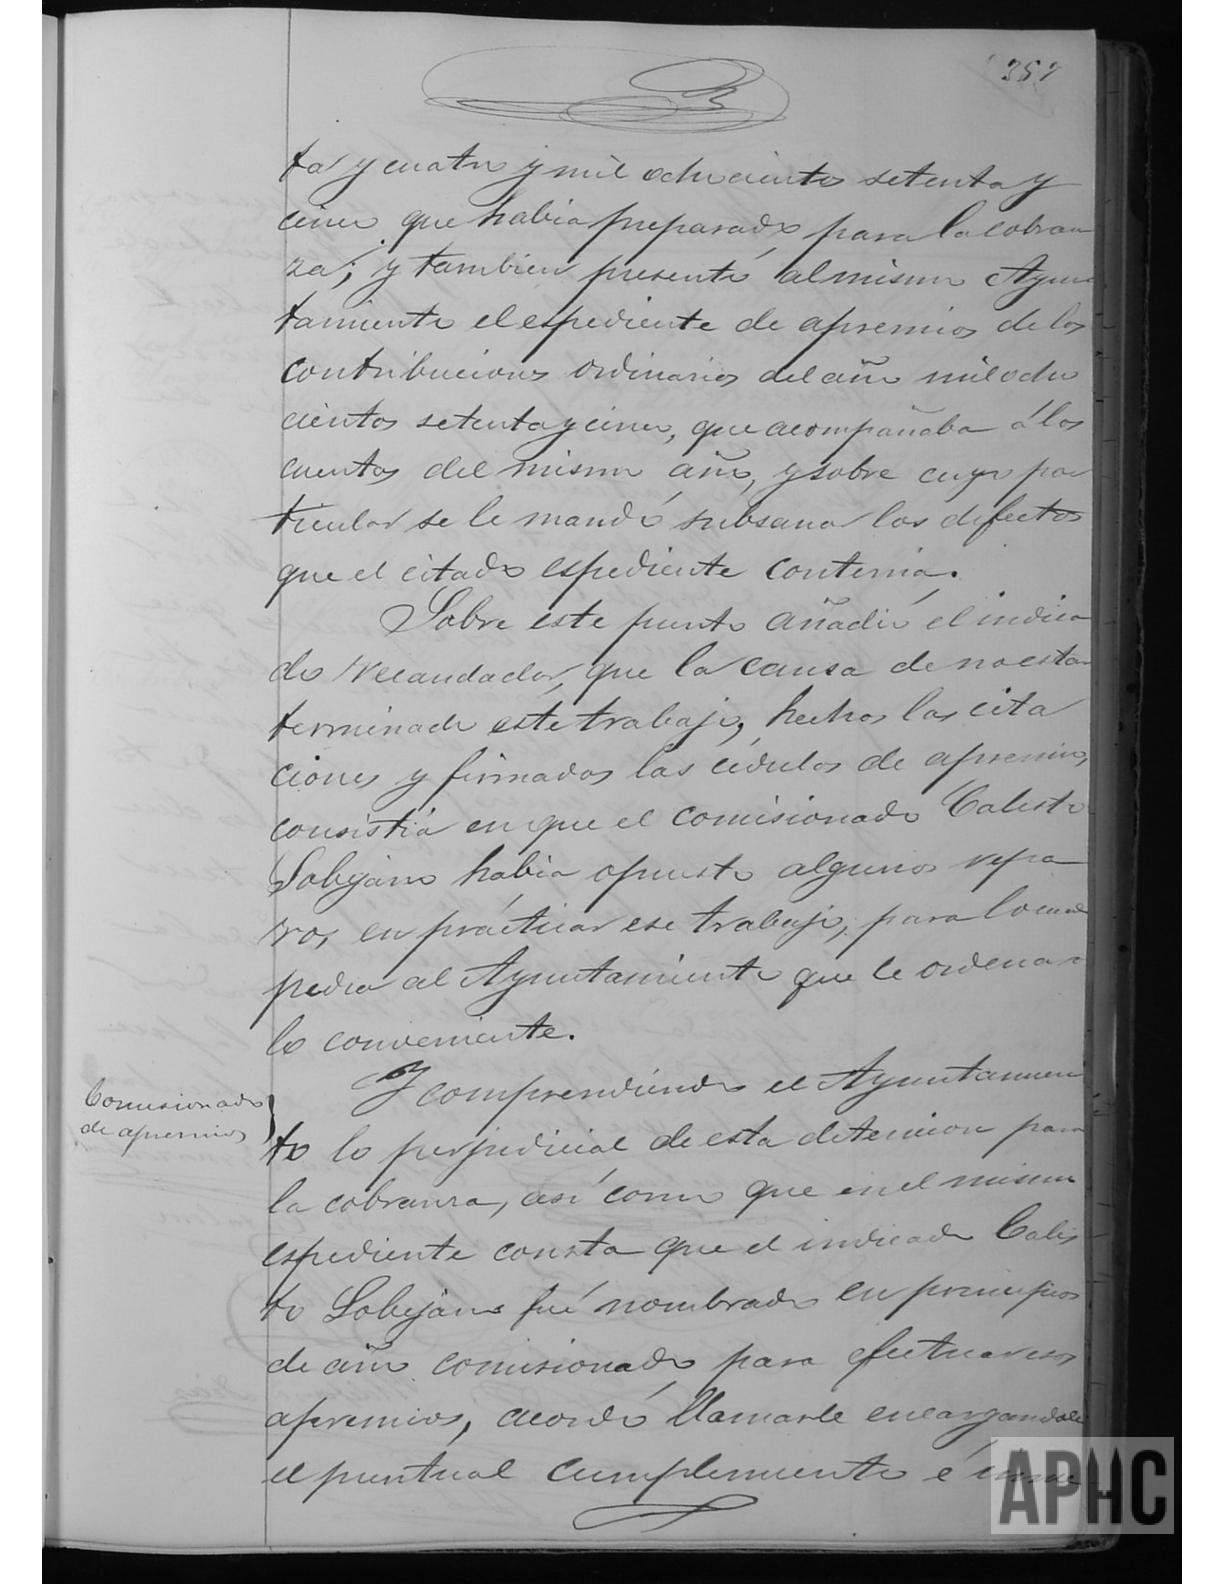 357
ta y cuatro y mil ochocientos setenta y
cinco que habia preparado para la cobran
za; y tambien presentó al mismo Ayun
tamiento el espediente de apremios de las
contribuciones ordinarias del año mil ocho
cientos setenta y cinco, que acompañaba á las
cuentas del mismo año, y sobre cuyo par
ticular se le mandó subsanar los defectos
que el citado espediente contenia.
Sobre este punto añadió el indica
do recaudador, que la causa de no estar
terminado este trabajo, hechas las cita
ciones y firmadas las cédulas de apremio,
consistía en que el comisionado Calisto
Lobejano habia opuesto algunos repa
ros, en prácticar ese trabajo, para lo cual
pedia al Ayuntamiento que le ordenara
lo conveniente.
Comisionado
de apremios
Y comprendiendo el Ayuntamien
to lo perjudicial de esta detencion para
la cobranza, así como que en el mismo
espediente consta que el indicado Calis
to Lobejano fué nombrado en principios
de año comisionado para efectuar esos
apremios, acordó llamarle encargandole
el puntual cumplimiento é inme
APHC